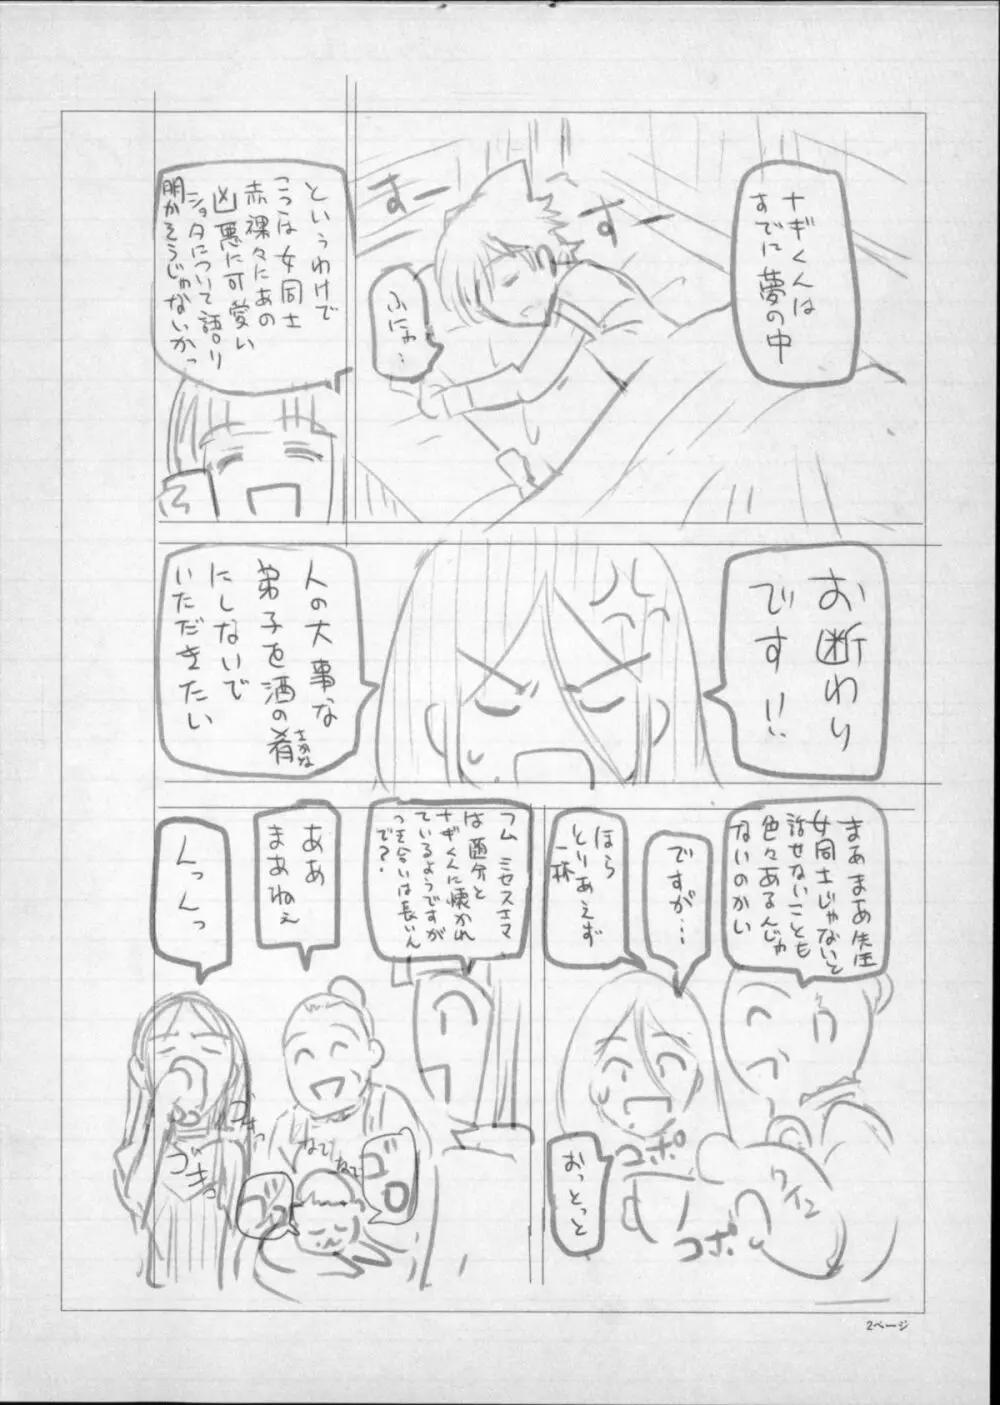 ナギくんは
すでに夢の中
すー
すー
ふにゃ…
というわけで
ここは女同士
赤裸々にあの
凶悪に可愛い
ショタについて語り
明かそうじゃないかっ
お断わり
です!!
人の大事な
弟子を酒の肴
さかな
にしないで
いただきたい
まぁまぁ先生
女同士じゃないと
話せないことも
色々あるんじゃ
ないのかい
ですが…
ほら
とりあえず
一杯
おっとっと
コポ
コポ
ワイン
フム ミセスエマ
は随分と
ナギくんに懐かれ
ているようですが
つき合いは長いん
で?
ああ
まあねぇ
んっんっ
ゴキュッ
づきっ
なで
なで
ゴロ
ゴロ
2ページ